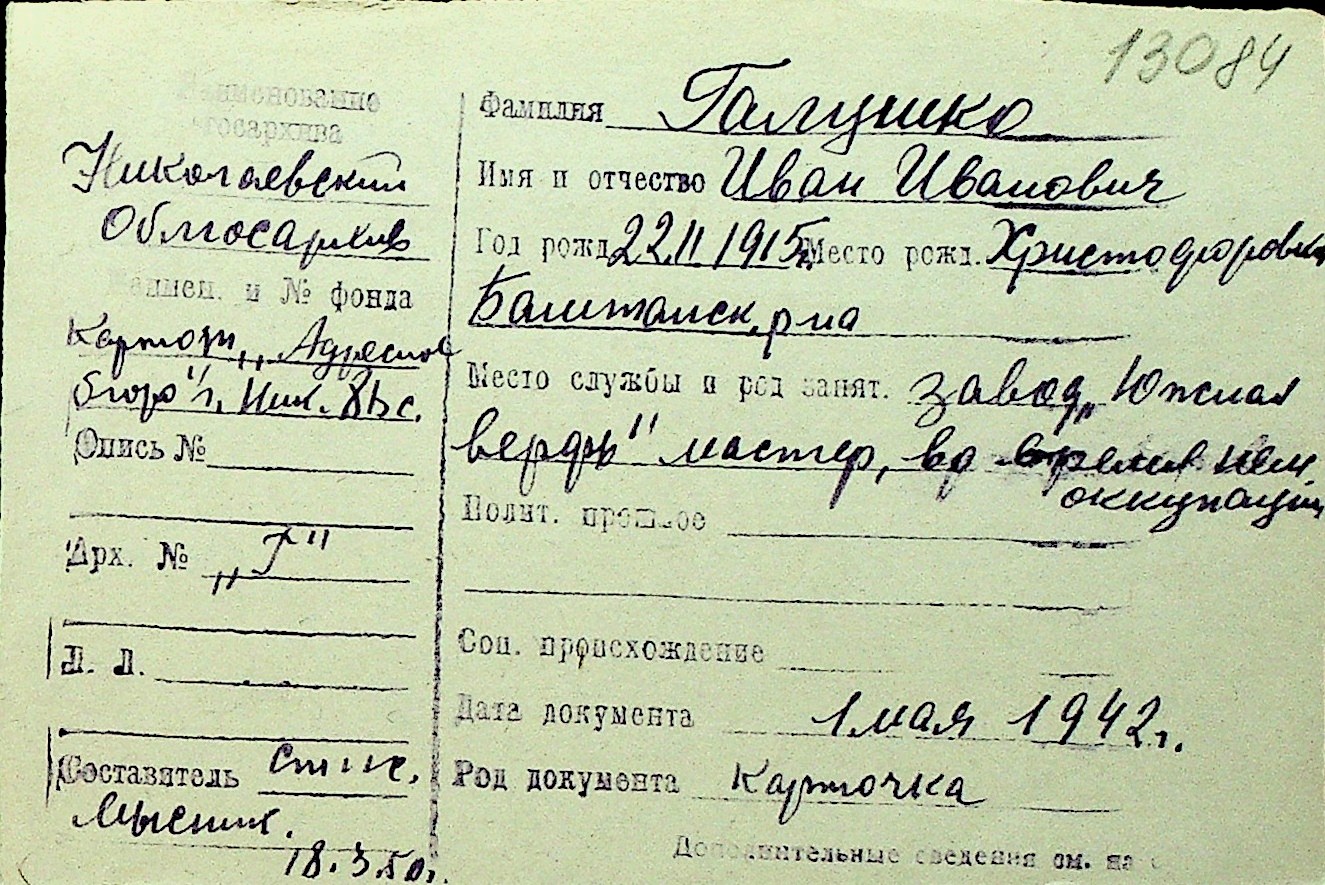 13084
Наименование
госархива
Николаевский
Облгосархив
Наимен. и № фонда
Картот. „Адресное
бюро" г. Ник.
Опись №
Арх. № „Г"
Л. Л.
Составитель
18.3.50г.
Фамилия Галушко
Имя и отчество Иван Иванович
Год рожд. 22.11 1915г. Место рожд. Христофоровка
Баштанск. р-на
Место службы и род занят. завод „Южная
верфь" мастер, во время нем.
оккупации
Полит. прошлое
Соц. происхождение
Дата документа 1 мая 1942г.
Род документа Карточка
Дополнительные сведения см. на